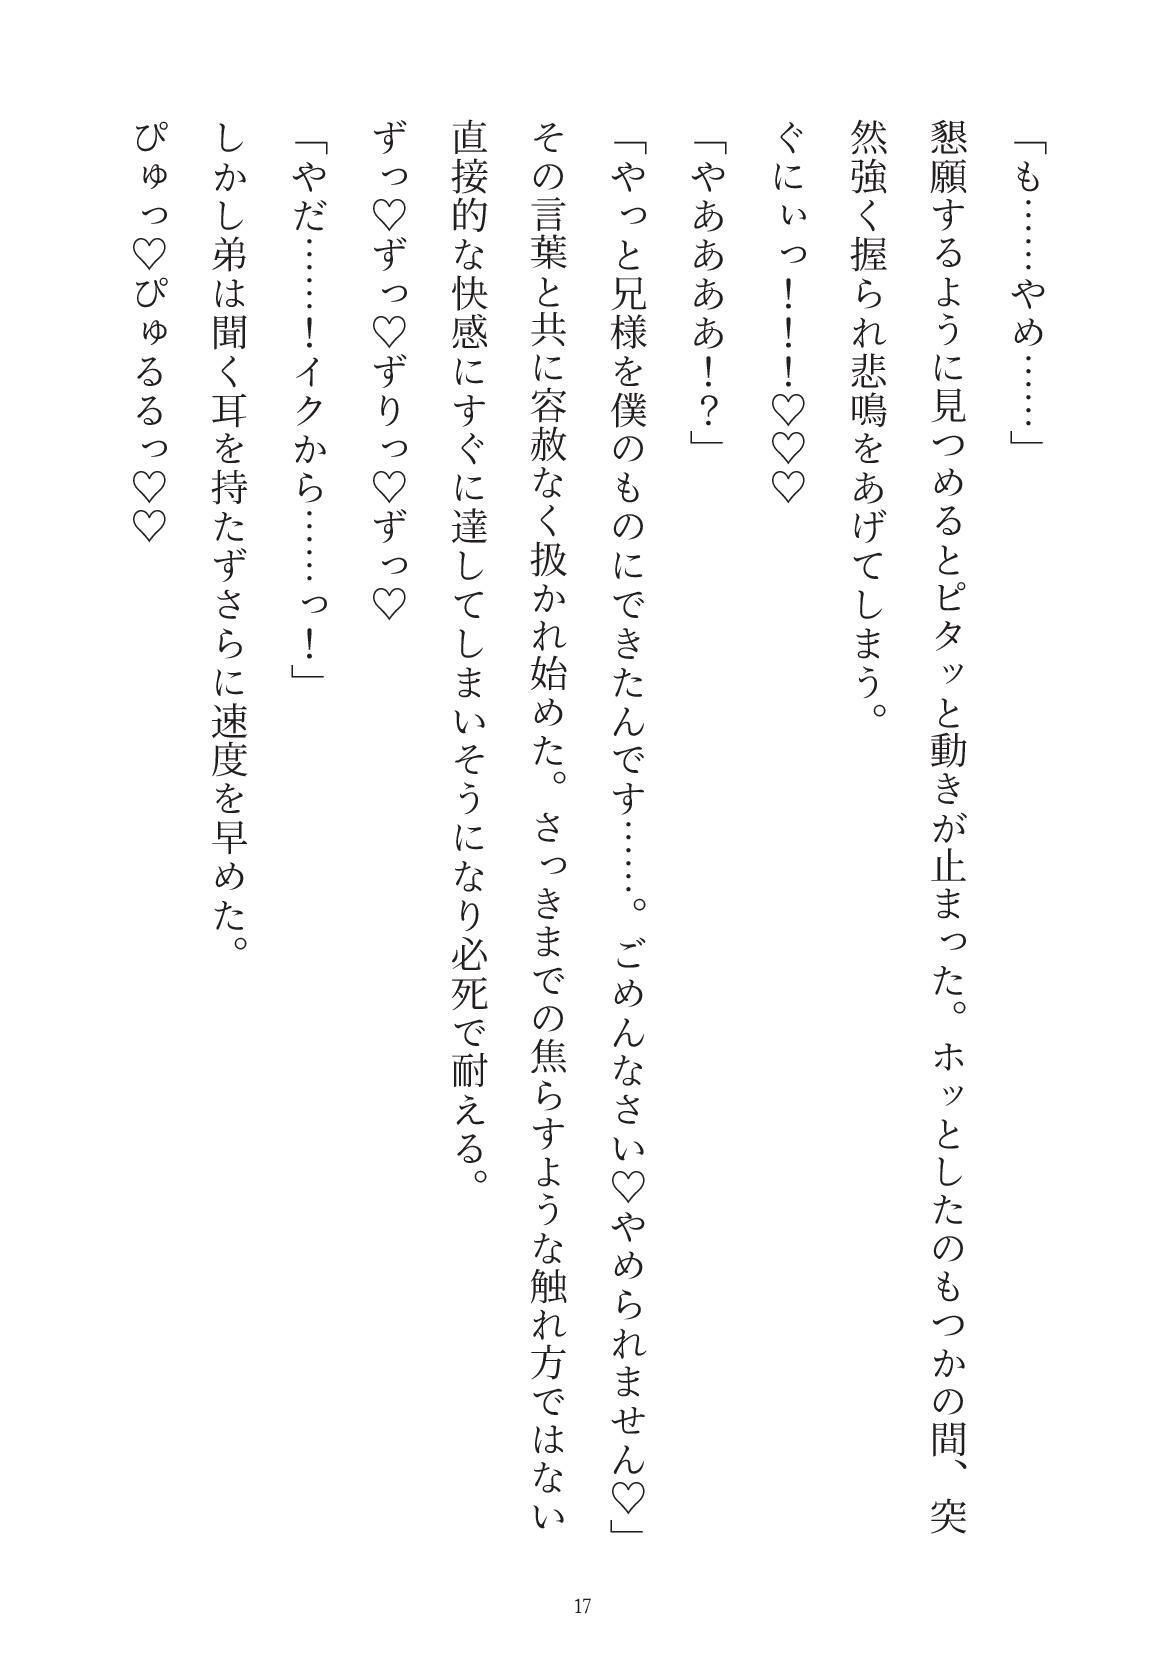 「も……やめ……」
懇願するように見つめるとピタッと動きが止まった。ホッとしたのもつかの間、突
然強く握られ悲鳴をあげてしまう。
ぐにぃっ！！！♡♡♡
「やああああ！？」
「やっと兄様を僕のものにできたんです……。ごめんなさい♡やめられません♡」
その言葉と共に容赦なく扱かれ始めた。さっきまでの焦らすような触れ方ではない
直接的な快感にすぐに達してしまいそうになり必死で耐える。
ずっ♡ずっ♡ずりっ♡ずっ♡
「やだ……！イクから……っ！」
しかし弟は聞く耳を持たずさらに速度を早めた。
ぴゅっ♡ぴゅるるっ♡♡
17